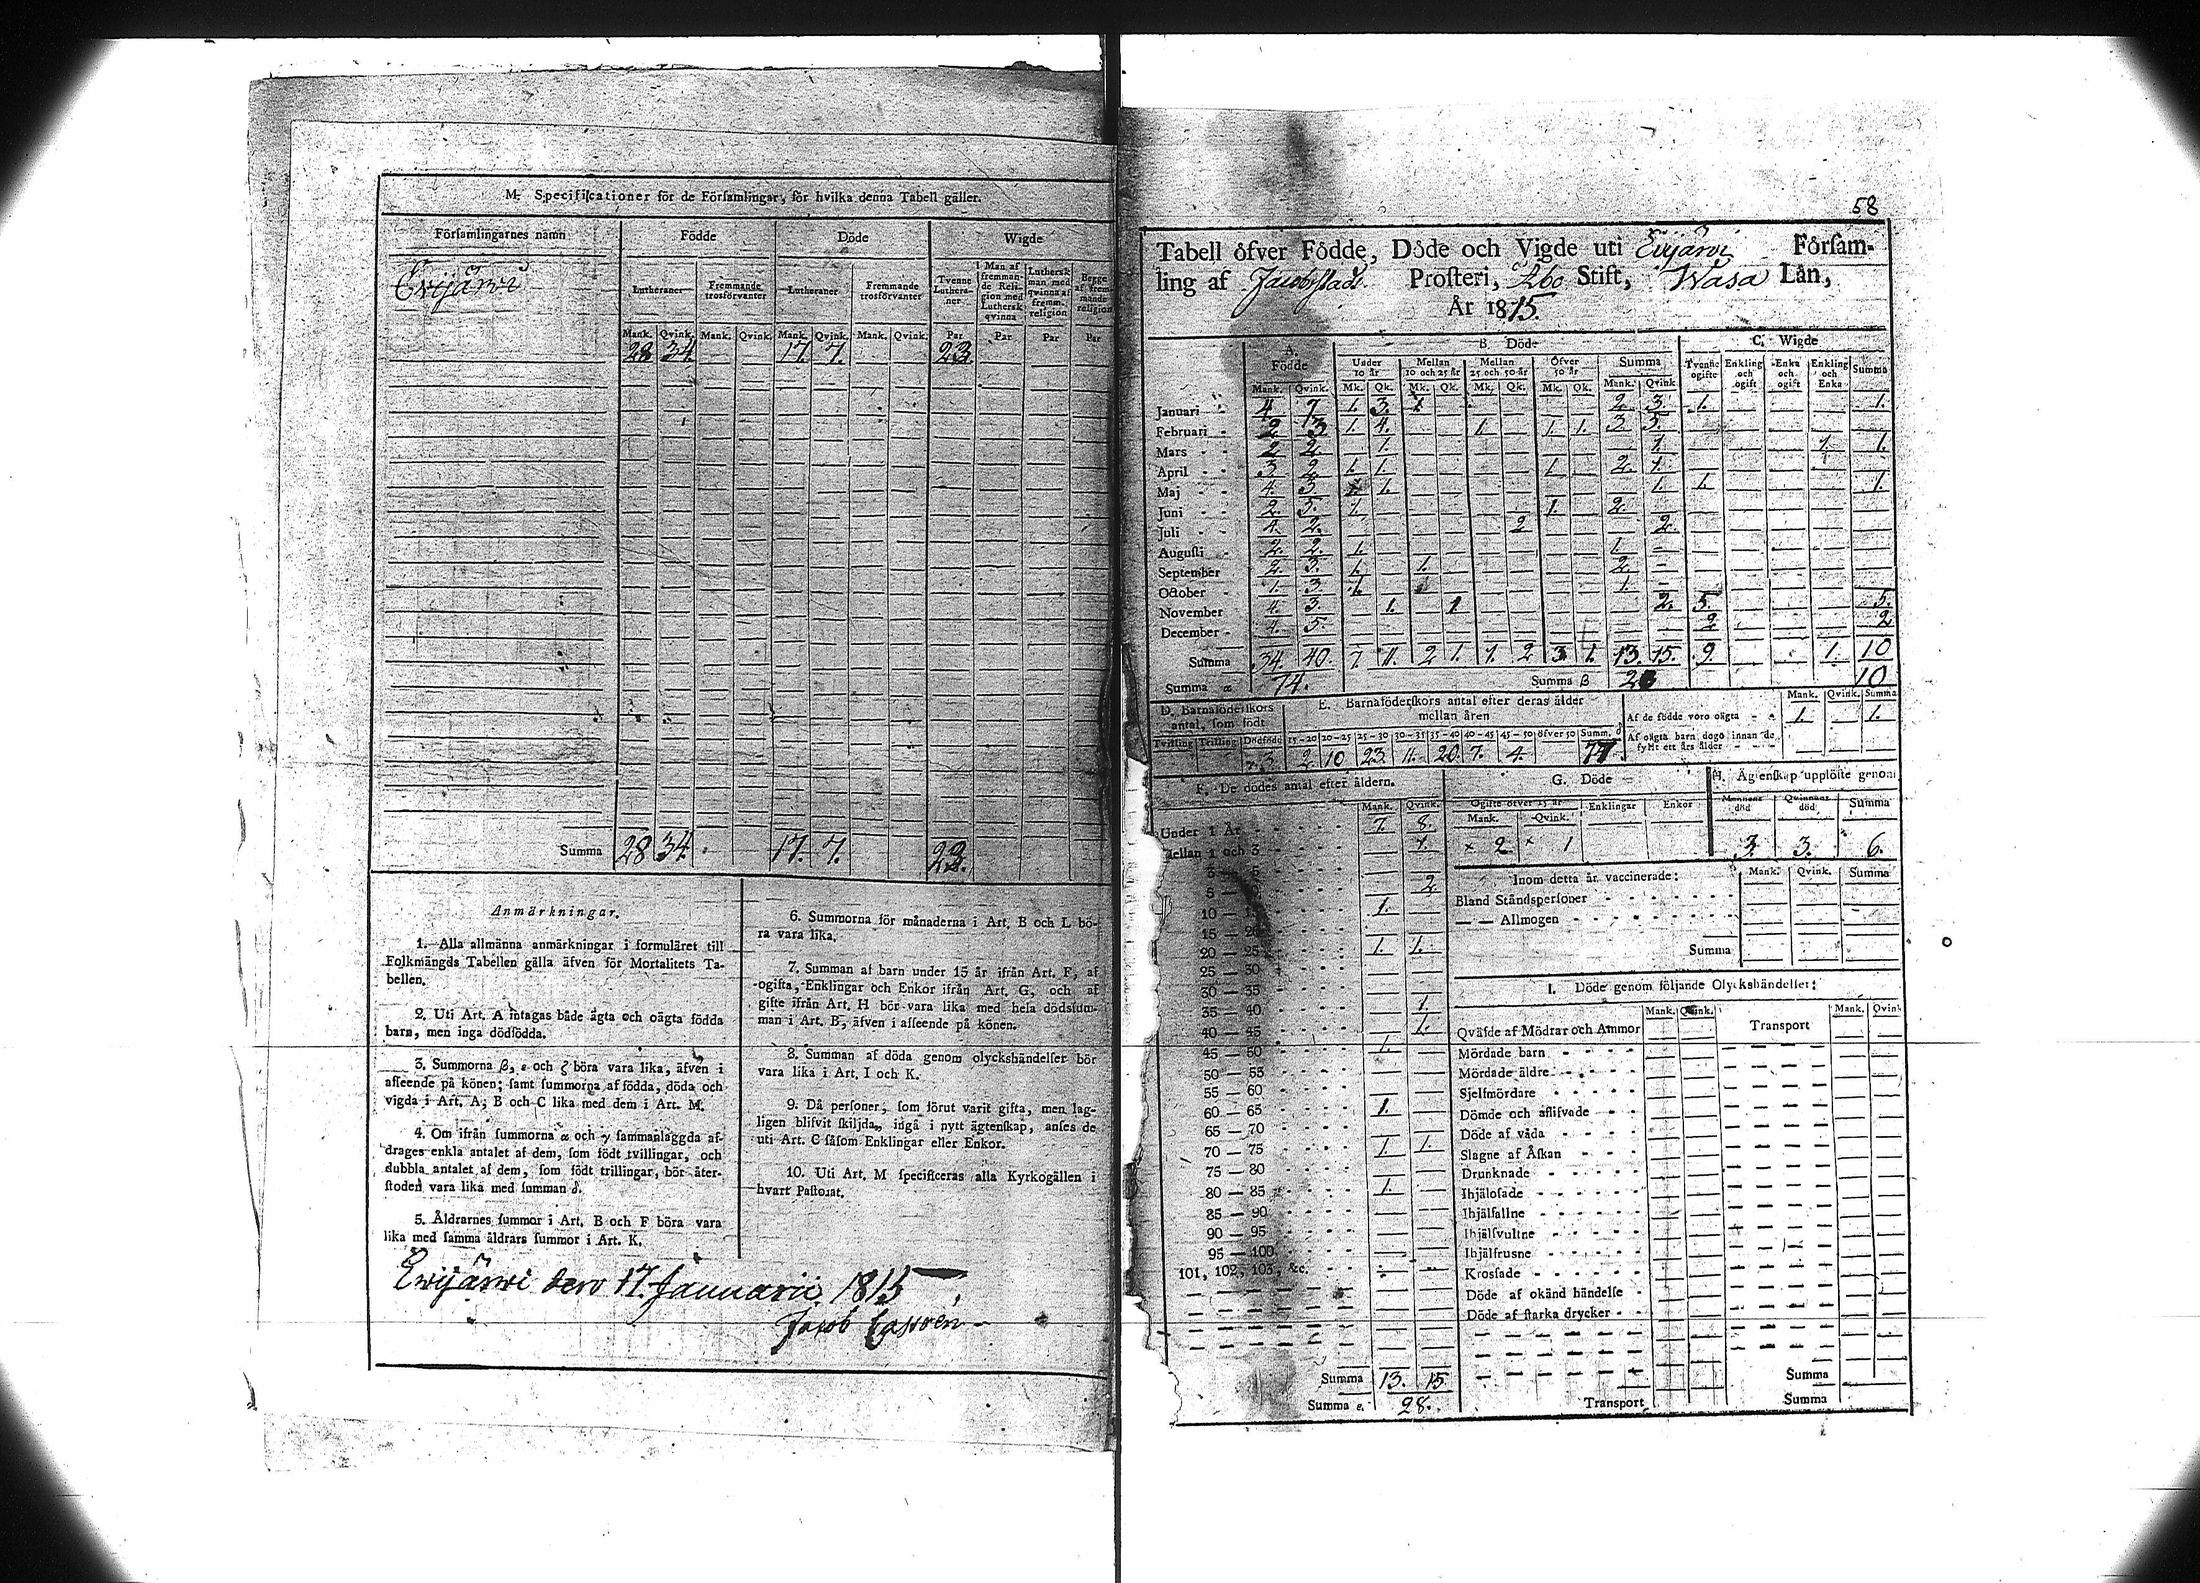 M. Specificationer för de Församlingar, för hvilka denna Tabell gäller.
Församlingarnes namn Födde Döde Wigde
Lutheraner Fremmande trosförvanter Lutheraner Fremmande trosförvanter Tvenne Lutheraner Man af fremmande Religion med Luthersk qvinna Luthersk man med qvinna af fremm. religion Begge af fremmande religion
Mank. Qvink. Mank. Qvink. Mank. Qvink. Mank. Qvink. Par Par Par Par
Evijärvi 28 34. 17. 7. 23
Summa 28 34. 17. 7. 23.
Anmärkningar.
1. Alla allmänna anmärkningar i formuläret till
Folkmängds Tabellen gälla äfven för Mortalitets Ta-
bellen.
2. Uti Art. A intagas både ägta och oägta födda
barn, men inga dödfödda.
3. Summorna β, ε och ζ böra vara lika, äfven i
afseende på könen; samt summorna af födda, döda och
vigda i Art. A, B och C lika med dem i Art. M.
4. Om ifrån summorna α och γ sammanlaggda af-
drages enkla antalet af dem, som födt tvillingar, och
dubbla antalet af dem, som födt trillingar, bör åter-
stoden vara lika med summan δ.
5. Åldrarnes summor i Art. B och F böra vara
lika med samma åldrars summor i Art. K.
6. Summorna för månaderna i Art. B och L bö-
ra vara lika.
7. Summan af barn under 15 år ifrån Art. F, af
ogifta, Enklingar och Enkor ifrån Art. G, och af
gifte ifrån Art. H bör vara lika med hela dödssum-
man i Art. B, äfven i afseende på könen.
8. Summan af döda genom olyckshändelser bör
vara lika i Art. I och K.
9. Då personer, som förut varit gifta, men lag-
ligen blifvit skiljda, ingå i nytt ägtenskap, anses de
uti Art. C såsom Enklingar eller Enkor.
10. Uti Art. M specificeras alla Kyrkogällen i
hvart Pastorat.
Evijärvi den 17. Januarii 1815
Jacob
58
Tabell öfver Födde, Döde och Vigde uti Evijärvi Försam-
ling af Jacobstads Prosteri, Åbo Stift, Wasa Län,
År 1815.
A. Födde B. Döde C. Wigde
Under 10 år Mellan 10 och 25 år Mellan 25 och 50 år Öfver 50 år Summa Tvenne ogifte Enkling och ogift Enka och ogift Enkling och Enka Summa
Mank. Qvink. Mk. Qk. Mk. Qk. Mk. Qk. Mk. Qk. Mank. Qvink.
Januari 4. 7 1. 3. 1. 2 3. 1. 1.
Februari 2 3 1. 4. 1. 1. 1. 3 5.
Mars 2 2. 1. 1. 1. 1.
April 3 2 1. 1. 1. 2. 1.
Maj 4. 3 1. 1. 1. 1.
Juni 2. 5. 1. 1. 2.
Juli 4. 2. 2 2.
Augusti 2. 2. 1. 1.
September 2. 3. 1. 1. 2.
October 1. 3 1. 1.
November 4. 3. 1. 1 2. 5. 5.
December 4. 5. 2 2
Summa 34. 40. 7 11. 2 1. 1. 2 3 1. 13. 15. 9. 1. 10
Summa α 74. Summa β 28 10
D. Barnaföderskors antal, som födt E. Barnaföderskors antal efter deras ålder mellan åren Mank. Qvink. Summa
Af de födde voro oägta 1. 1.
Af oägta barn dogo innan de fyllt ett års ålder
Tvilling Trilling Dödfödd 15–20 20–25 25–30 30–35 35–40 40–45 45–50 öfver 50 Summ. δ
3 2 10 23. 11. 20. 7. 4. 77.
F. De dödes antal efter åldern. G. Döde H. Ägtenskap upplöste genom
Mank. Qvink. Ogifte öfver 15 år Enklingar Enkor Mannens död Qvinnans död Summa
Mank. Qvink.
Under 1 År 7. 8. 2 1 3. 3. 6.
Mellan 1 och 3 1.
3 — 5
5 — 2
10 — 1.
15 — 20
20 — 25 1. 1.
25 — 30
30 — 35
35 — 40 1.
40 — 45 1.
45 — 50 1.
50 — 55
55 — 60
60 — 65 1.
65 — 70
70 — 75 1. 1.
75 — 80
80 — 85 1.
85 — 90
90 — 95
95 — 100
101, 102, 103, &c.
Summa 13. 15
Summa ε. 28.
Inom detta år vaccinerade: Mank. Qvink. Summa
Bland Ståndspersoner
— — Allmogen
Summa
I. Döde genom följande Olyckshändelser:
Mank. Qvink. Transport Mank. Qvink
Qväfde af Mödrar och Ammor
Mördade barn
Mördade äldre
Sjelfmördare
Dömde och aflifvade
Döde af våda
Slagne af Åskan
Drunknade
Ihjälosade
Ihjälfallne
Ihjälsvultne
Ihjälfrusne
Krossade
Döde af okänd händelse
Döde af starka drycker
Summa
Transport Summa